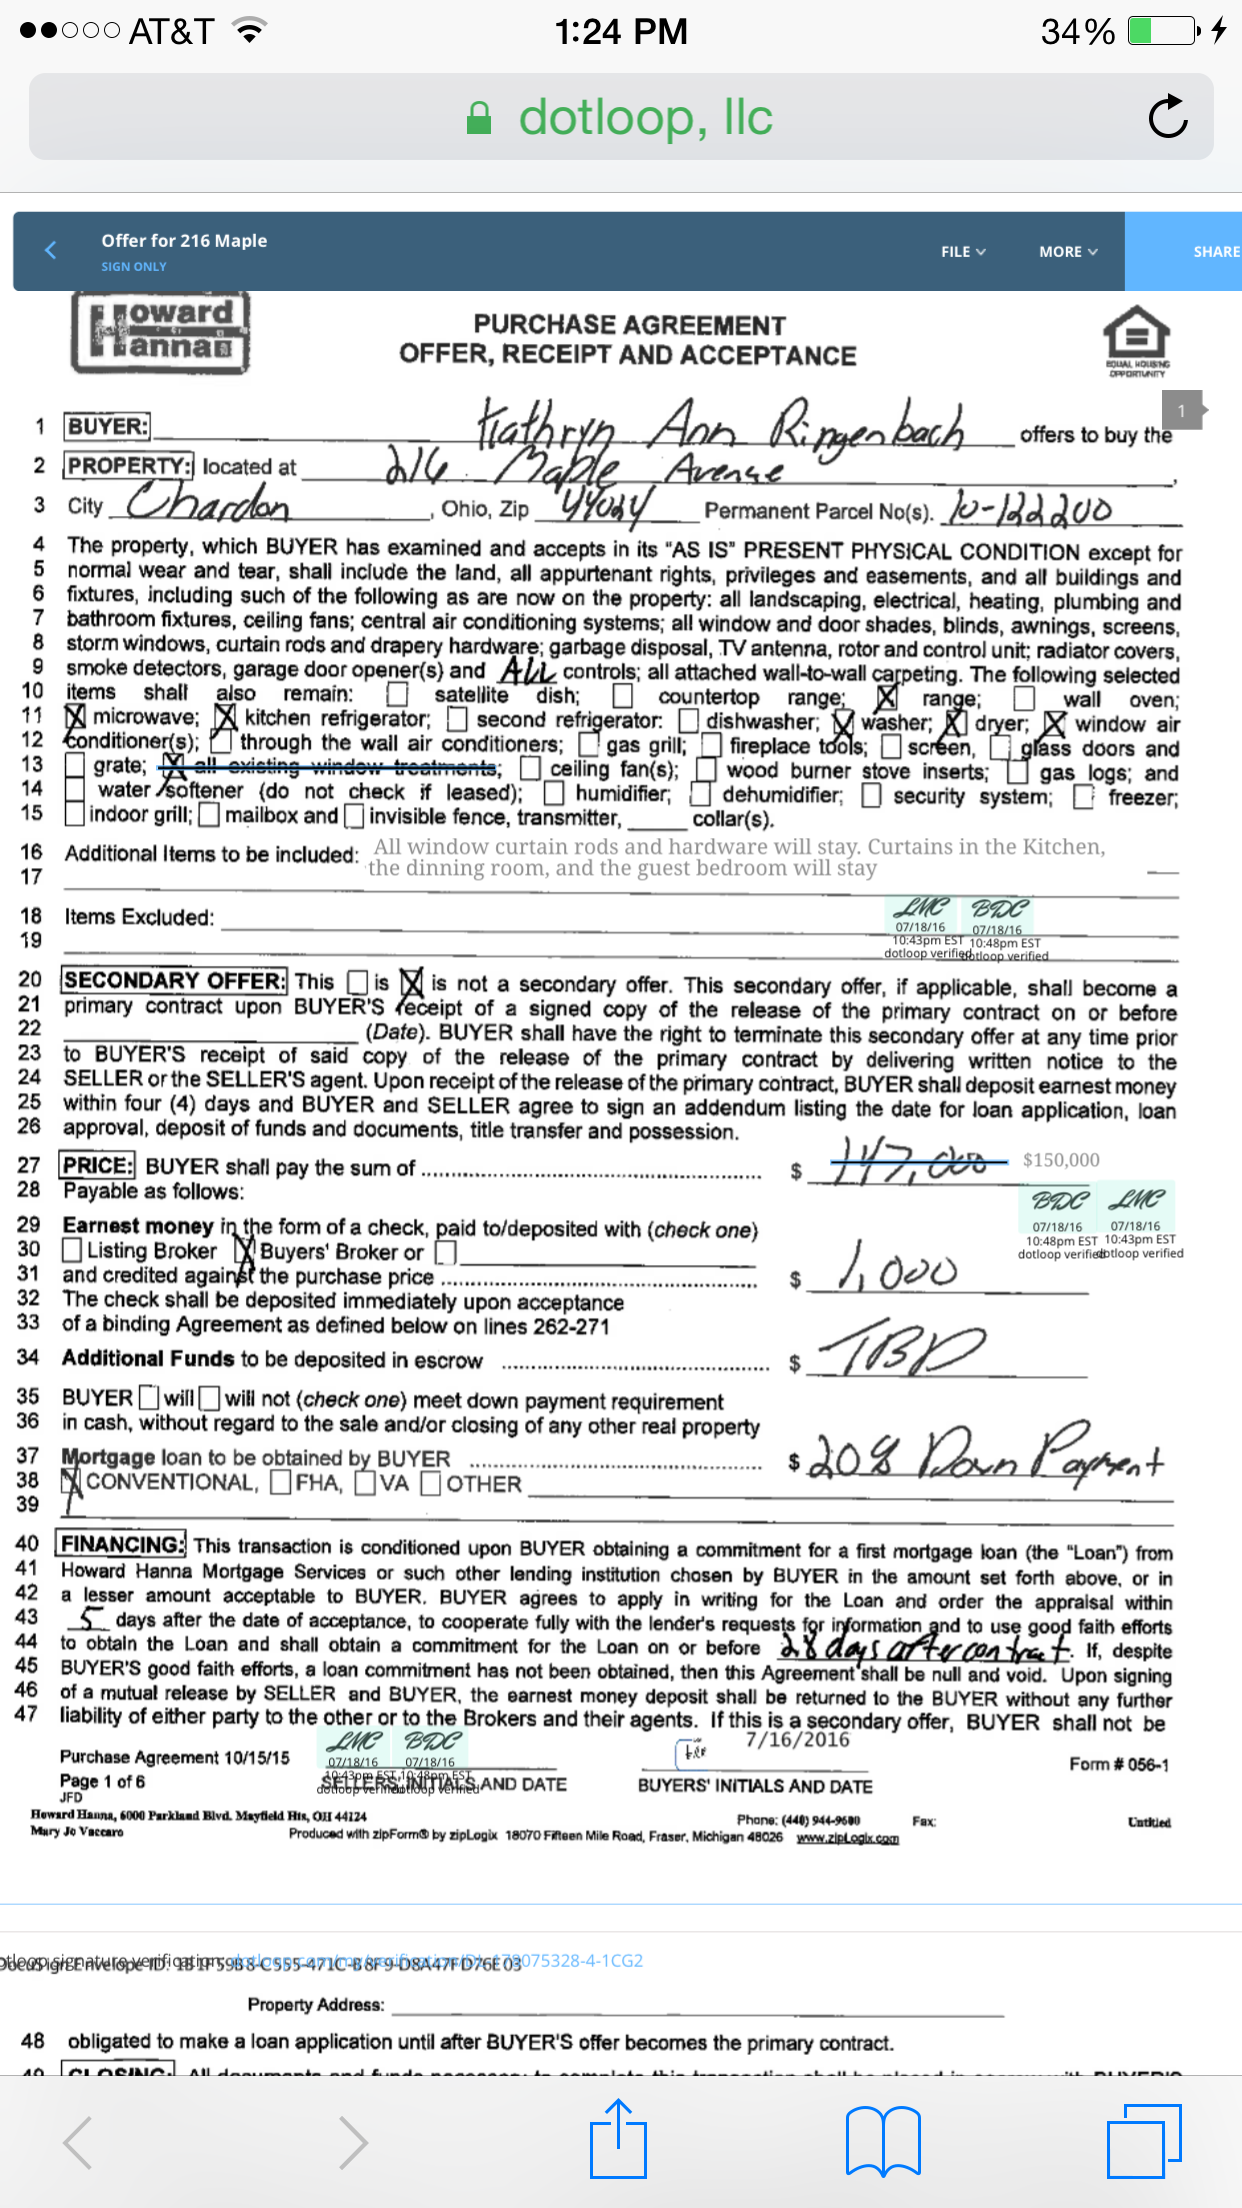 AT&T 1:24 PM 34%
dotloop, llc
Offer for 216 Maple
SIGN ONLY
FILE MORE SHARE
Howard
Hanna
PURCHASE AGREEMENT
OFFER, RECEIPT AND ACCEPTANCE
EQUAL HOUSING
OPPORTUNITY
1
1 BUYER: Kathryn Ann Ringenbach offers to buy the
2 PROPERTY: located at 216 Maple Avenue,
3 City Chardon, Ohio, Zip 44024 Permanent Parcel No(s). 10-122200
4 The property, which BUYER has examined and accepts in its “AS IS” PRESENT PHYSICAL CONDITION except for
5 normal wear and tear, shall include the land, all appurtenant rights, privileges and easements, and all buildings and
6 fixtures, including such of the following as are now on the property: all landscaping, electrical, heating, plumbing and
7 bathroom fixtures, ceiling fans; central air conditioning systems; all window and door shades, blinds, awnings, screens,
8 storm windows, curtain rods and drapery hardware; garbage disposal, TV antenna, rotor and control unit; radiator covers,
9 smoke detectors, garage door opener(s) and ALL controls; all attached wall-to-wall carpeting. The following selected
10 items shall also remain: satellite dish; countertop range; range; wall oven;
11 microwave; kitchen refrigerator; second refrigerator: dishwasher; washer; dryer; window air
12 conditioner(s); through the wall air conditioners; gas grill; fireplace tools; screen, glass doors and
13 grate; all existing window treatments; ceiling fan(s); wood burner stove inserts; gas logs; and
14 water softener (do not check if leased); humidifier; dehumidifier; security system; freezer;
15 indoor grill; mailbox and invisible fence, transmitter, collar(s).
16 Additional Items to be included: All window curtain rods and hardware will stay. Curtains in the Kitchen,
17 the dinning room, and the guest bedroom will stay
18 Items Excluded:
19
LMC BDC
07/18/16 07/18/16
10:43pm EST 10:48pm EST
dotloop verified dotloop verified
20 SECONDARY OFFER: This is X is not a secondary offer. This secondary offer, if applicable, shall become a
21 primary contract upon BUYER'S receipt of a signed copy of the release of the primary contract on or before
22 (Date). BUYER shall have the right to terminate this secondary offer at any time prior
23 to BUYER'S receipt of said copy of the release of the primary contract by delivering written notice to the
24 SELLER or the SELLER'S agent. Upon receipt of the release of the primary contract, BUYER shall deposit earnest money
25 within four (4) days and BUYER and SELLER agree to sign an addendum listing the date for loan application, loan
26 approval, deposit of funds and documents, title transfer and possession.
27 PRICE: BUYER shall pay the sum of $ 147,000 $150,000
28 Payable as follows:
BDC LMC
07/18/16 07/18/16
10:48pm EST 10:43pm EST
dotloop verified dotloop verified
29 Earnest money in the form of a check, paid to/deposited with (check one)
30 Listing Broker X Buyers' Broker or
31 and credited against the purchase price $ 1,000
32 The check shall be deposited immediately upon acceptance
33 of a binding Agreement as defined below on lines 262-271
34 Additional Funds to be deposited in escrow $ TBD
35 BUYER will will not (check one) meet down payment requirement
36 in cash, without regard to the sale and/or closing of any other real property
37 Mortgage loan to be obtained by BUYER $ 20% Down Payment
38 X CONVENTIONAL, FHA, VA OTHER
39
40 FINANCING: This transaction is conditioned upon BUYER obtaining a commitment for a first mortgage loan (the “Loan”) from
41 Howard Hanna Mortgage Services or such other lending institution chosen by BUYER in the amount set forth above, or in
42 a lesser amount acceptable to BUYER. BUYER agrees to apply in writing for the Loan and order the appraisal within
43 5 days after the date of acceptance, to cooperate fully with the lender's requests for information and to use good faith efforts
44 to obtain the Loan and shall obtain a commitment for the Loan on or before 28 days after contract. If, despite
45 BUYER'S good faith efforts, a loan commitment has not been obtained, then this Agreement shall be null and void. Upon signing
46 of a mutual release by SELLER and BUYER, the earnest money deposit shall be returned to the BUYER without any further
47 liability of either party to the other or to the Brokers and their agents. If this is a secondary offer, BUYER shall not be
LMC BDC 7/16/2016
07/18/16 07/18/16
10:43pm EST 10:48pm EST
dotloop verified dotloop verified
Purchase Agreement 10/15/15 SELLERS' INITIALS AND DATE BUYERS' INITIALS AND DATE Form # 056-1
Page 1 of 6
JFD
Howard Hanna, 6000 Parkland Blvd. Mayfield Hts, OH 44124 Phone: (440) 944-9600 Fax: Untitled
Mary Jo Vaccaro Produced with zipForm® by zipLogix 18070 Fifteen Mile Road, Fraser, Michigan 48026 www.zipLogix.com
dotloop signature verification:
Property Address:
48 obligated to make a loan application until after BUYER'S offer becomes the primary contract.
49 CLOSING: All documents and funds necessary to complete this transaction shall be placed in escrow with BUYER'S